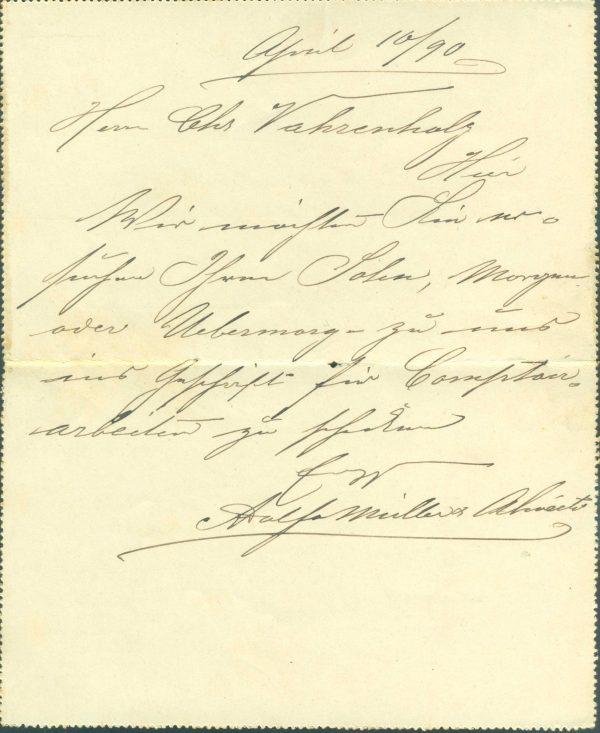 April 10/90
Herrn Chs Vahrenholz
Hier
Wir möchten Sie er-
suchen Ihren Sohn, Morgen
oder Uebermorg- zu uns
ins Geschäft für Comptoir-
arbeiten zu schicken
Adolfo Müller &